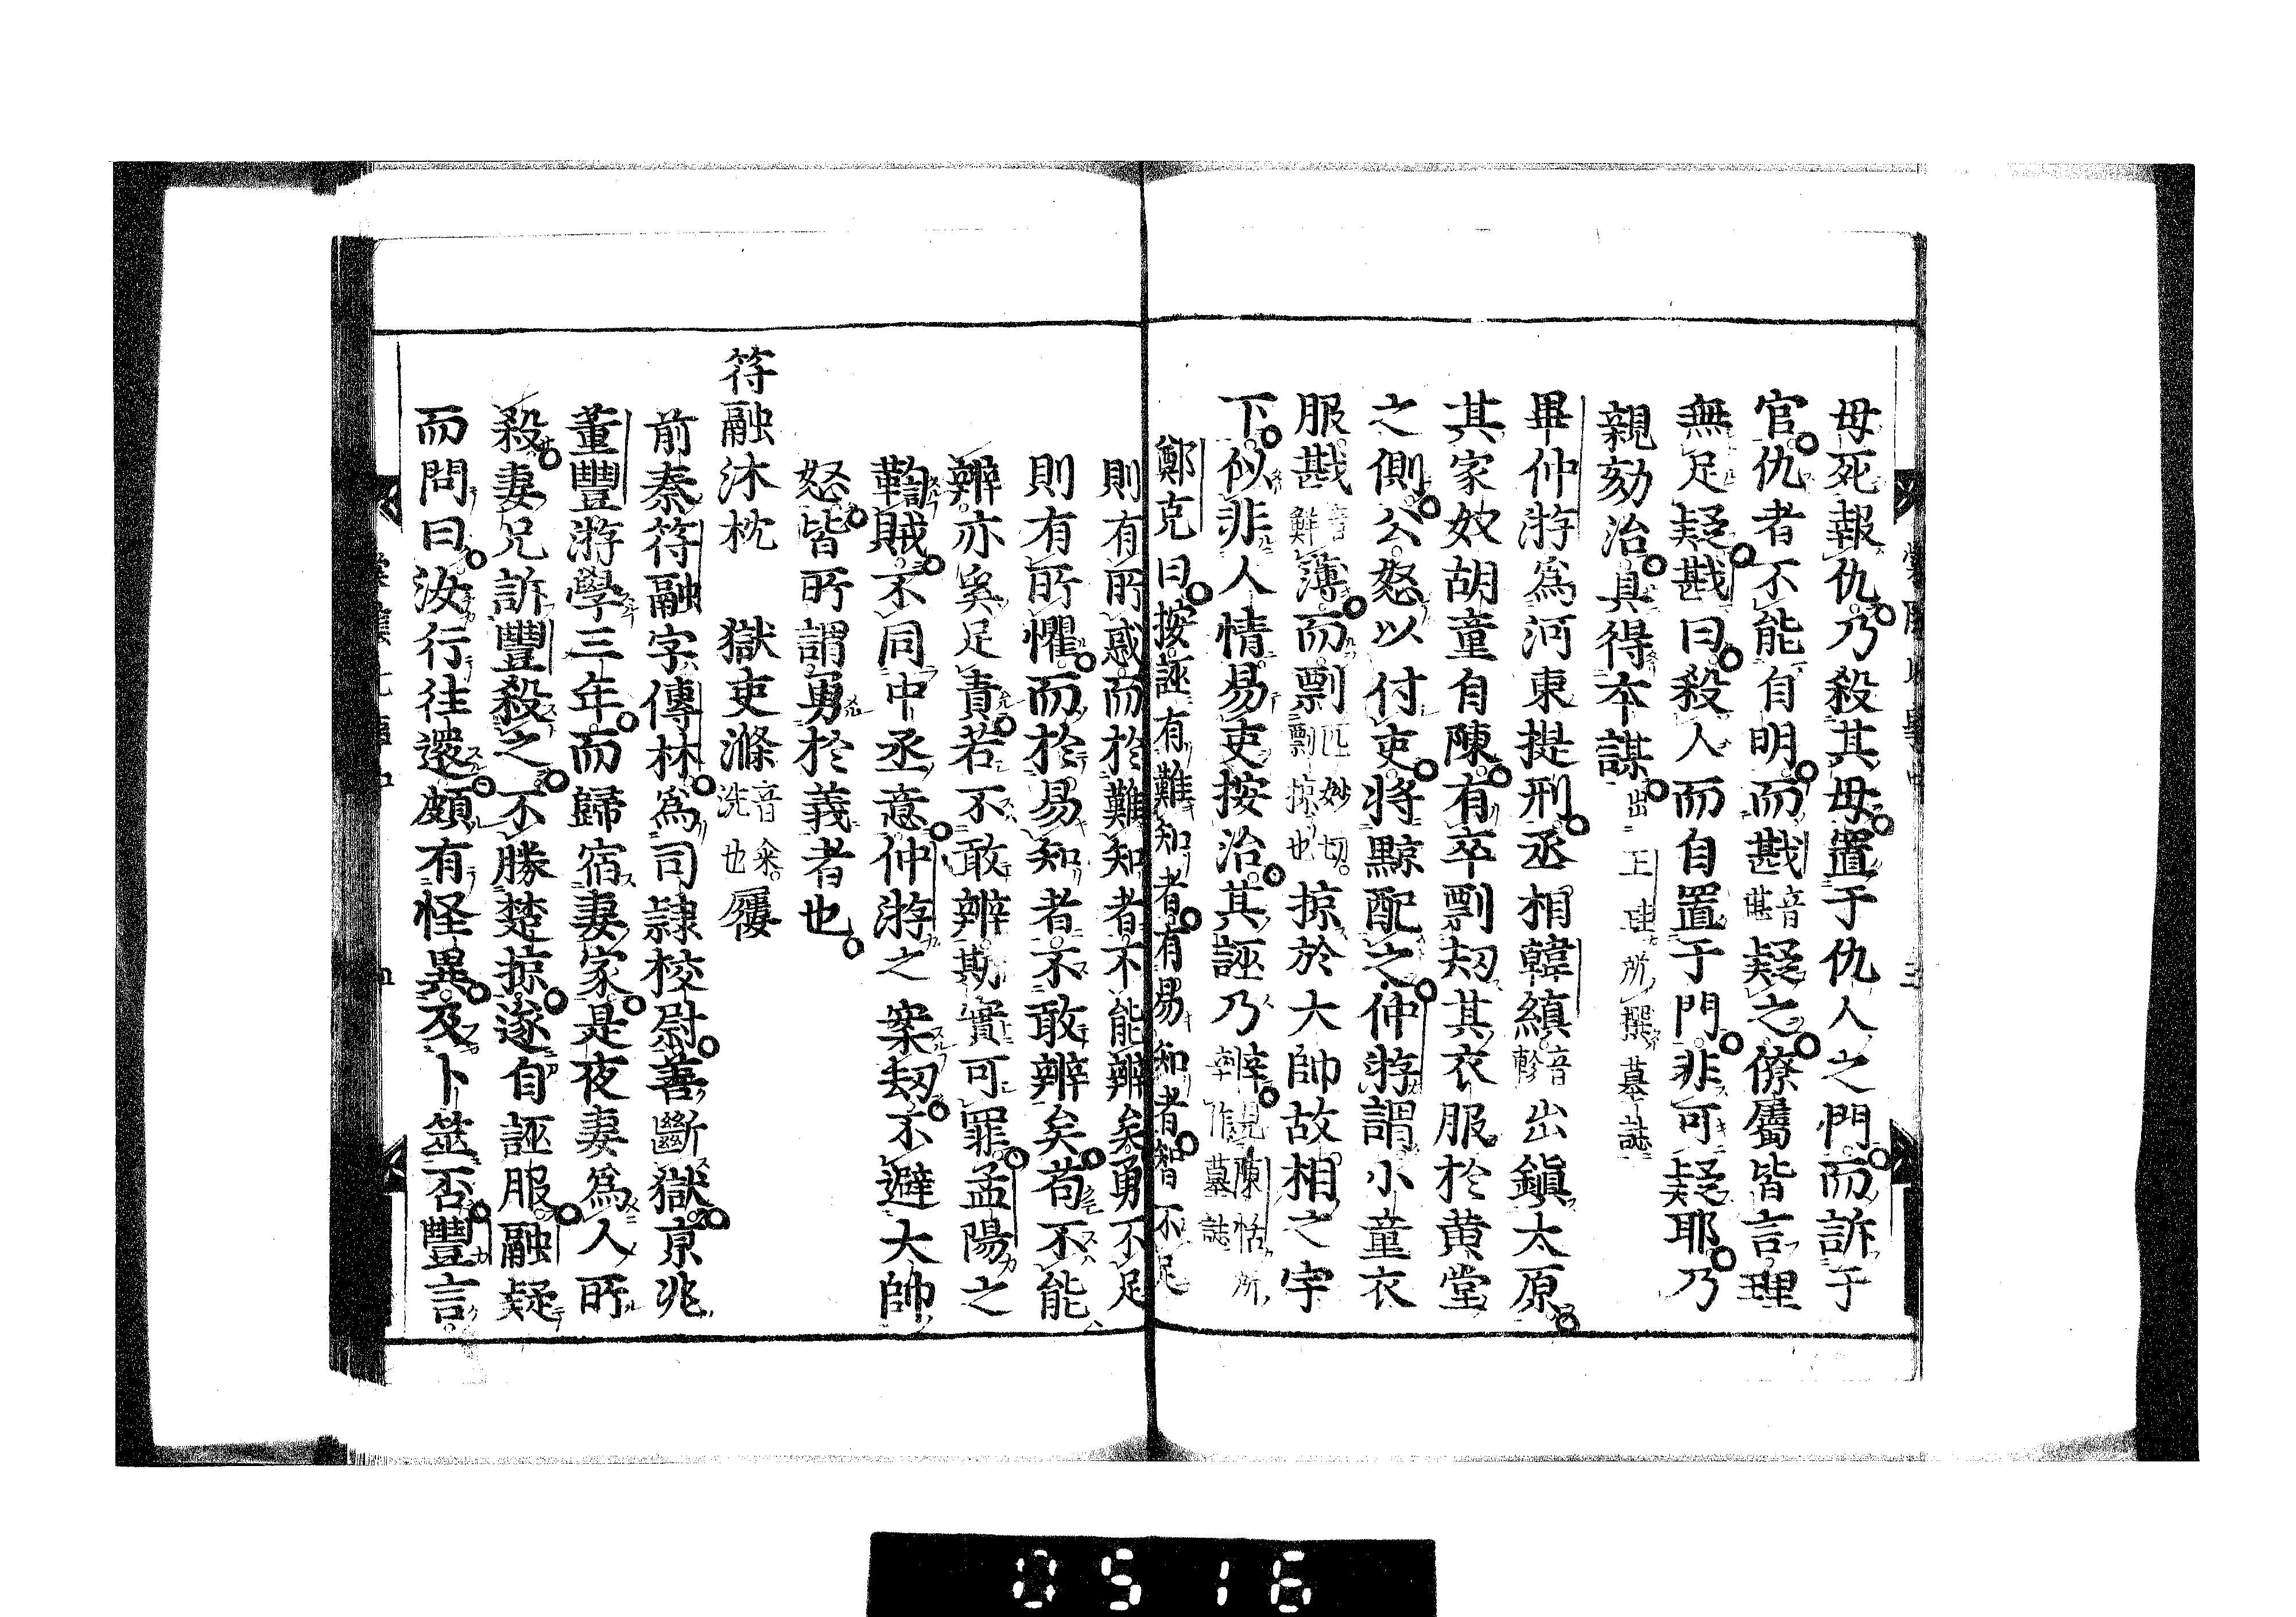 母死報仇乃殺其母置于仇人之門而訴于
官仇者不能自明而戡音堪疑之僚屬皆言理
無足疑戡曰殺人而自置于門非可疑耶乃
親劾治具得本謀出王珪所撰墓誌
畢仲游為河東提刑丞相韓縝音軫出鎮太原
其家奴胡童自陳有卒剽刧其衣服於黄堂
之側公怒以付吏將黥配之仲游謂小童衣
服尠音鮮薄而剽匹妙切剽掠也掠於大帥故相之宇
下似非人情易吏按治其誣乃辯見陳恬所作墓誌
鄭克曰按誣有難知者有易知者智不足
則有所惑而於難知者不能辨矣勇不足
則有所懼而於易知者不敢辨矣苟不能
辨亦奚足責若不敢辨斯實可罪孟陽之
鞫賊不同中丞意仲游之案刧不避大帥
怒皆所謂勇於義者也
符融沐枕　獄吏滌音籴洗也屨
前秦符融字傳林為司隷校尉善斷獄京兆
董豐游學三年而歸宿妻家是夜妻為人所
殺妻兄訴豐殺之不勝楚掠遂自誣服融疑
而問曰汝行往還頗有怪異及卜筮否豐言
0516